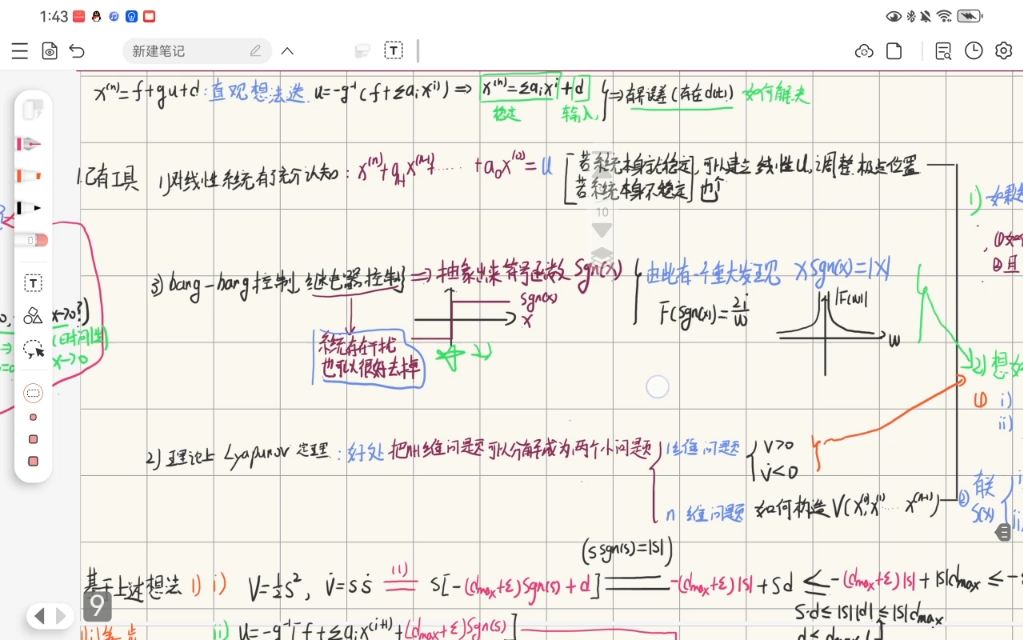 1:43
新建笔记
x⁽ⁿ⁾=f+gu+d:直观想法选 u=-g⁻¹(f+Σaᵢx⁽ⁱ⁾)⇒ x⁽ⁿ⁾=Σaᵢxⁱ+d ⇒有误差(存在d(t)) 如何解决
稳定 输入
1.已有工具 1)对线性系统有了充分认知: x⁽ⁿ⁾+aₙ₋₁x⁽ⁿ⁻¹⁾⋯⋯+a₀x⁽⁰⁾=u 若系统本身就稳定,可以建立线性u,调整极点位置
若系统本身不稳定 也个
10
1)如果
3)bang-bang控制,继电器控制⇒抽象出来符号函数Sgn(x) 由此有一个重大发现 xSgn(x)=|x|
sgn(x)
x
F(Sgn(x))=2i/w
|F(w)|
w
系统存在干扰
也可以很好去掉
x→0?)
(时间性)
x→0
2)想
① i)
ii)
2)理论上 Lyapunov 定理:好处 把n维问题可以分解成为两个小问题
1维问题 V>0
V̇<0
n维问题 如何构造V(x⁽⁰⁾,x⁽¹⁾⋯x⁽ⁿ⁻¹⁾)
② 有关
S(x)
(s sgn(s)=|s|)
基于上述想法 1) i) V=½s², V̇=sṡ =(1)= s[-(dmax+ε)Sgn(s)+d] = -(dmax+ε)|s|+sd ≤ -(dmax+ε)|s|+|s|dmax ≤-
s·d≤|s||d|≤|s|dmax
9
ii) u=-g⁻¹[f+Σaᵢx⁽ⁱ⁺¹⁾+(dmax+ε)Sgn(s)]